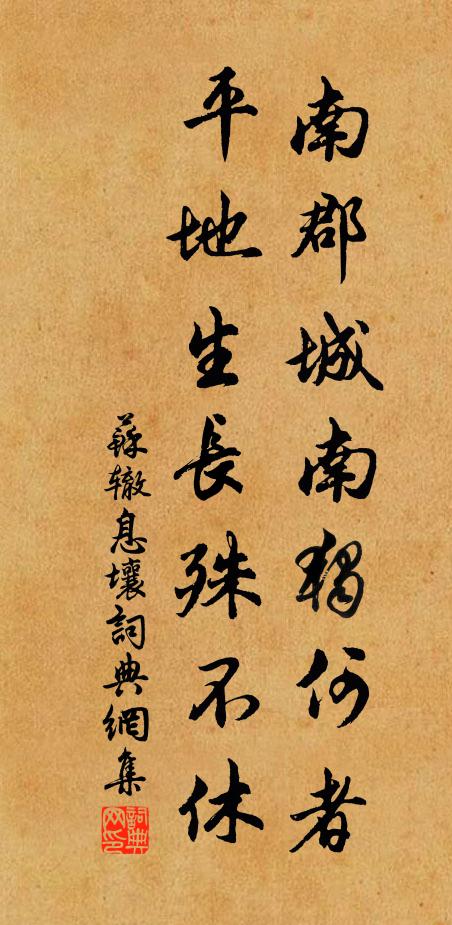 南郡城南獨何者
平地生長殊不休
蘇辙息壤詞典網集
詞典网印